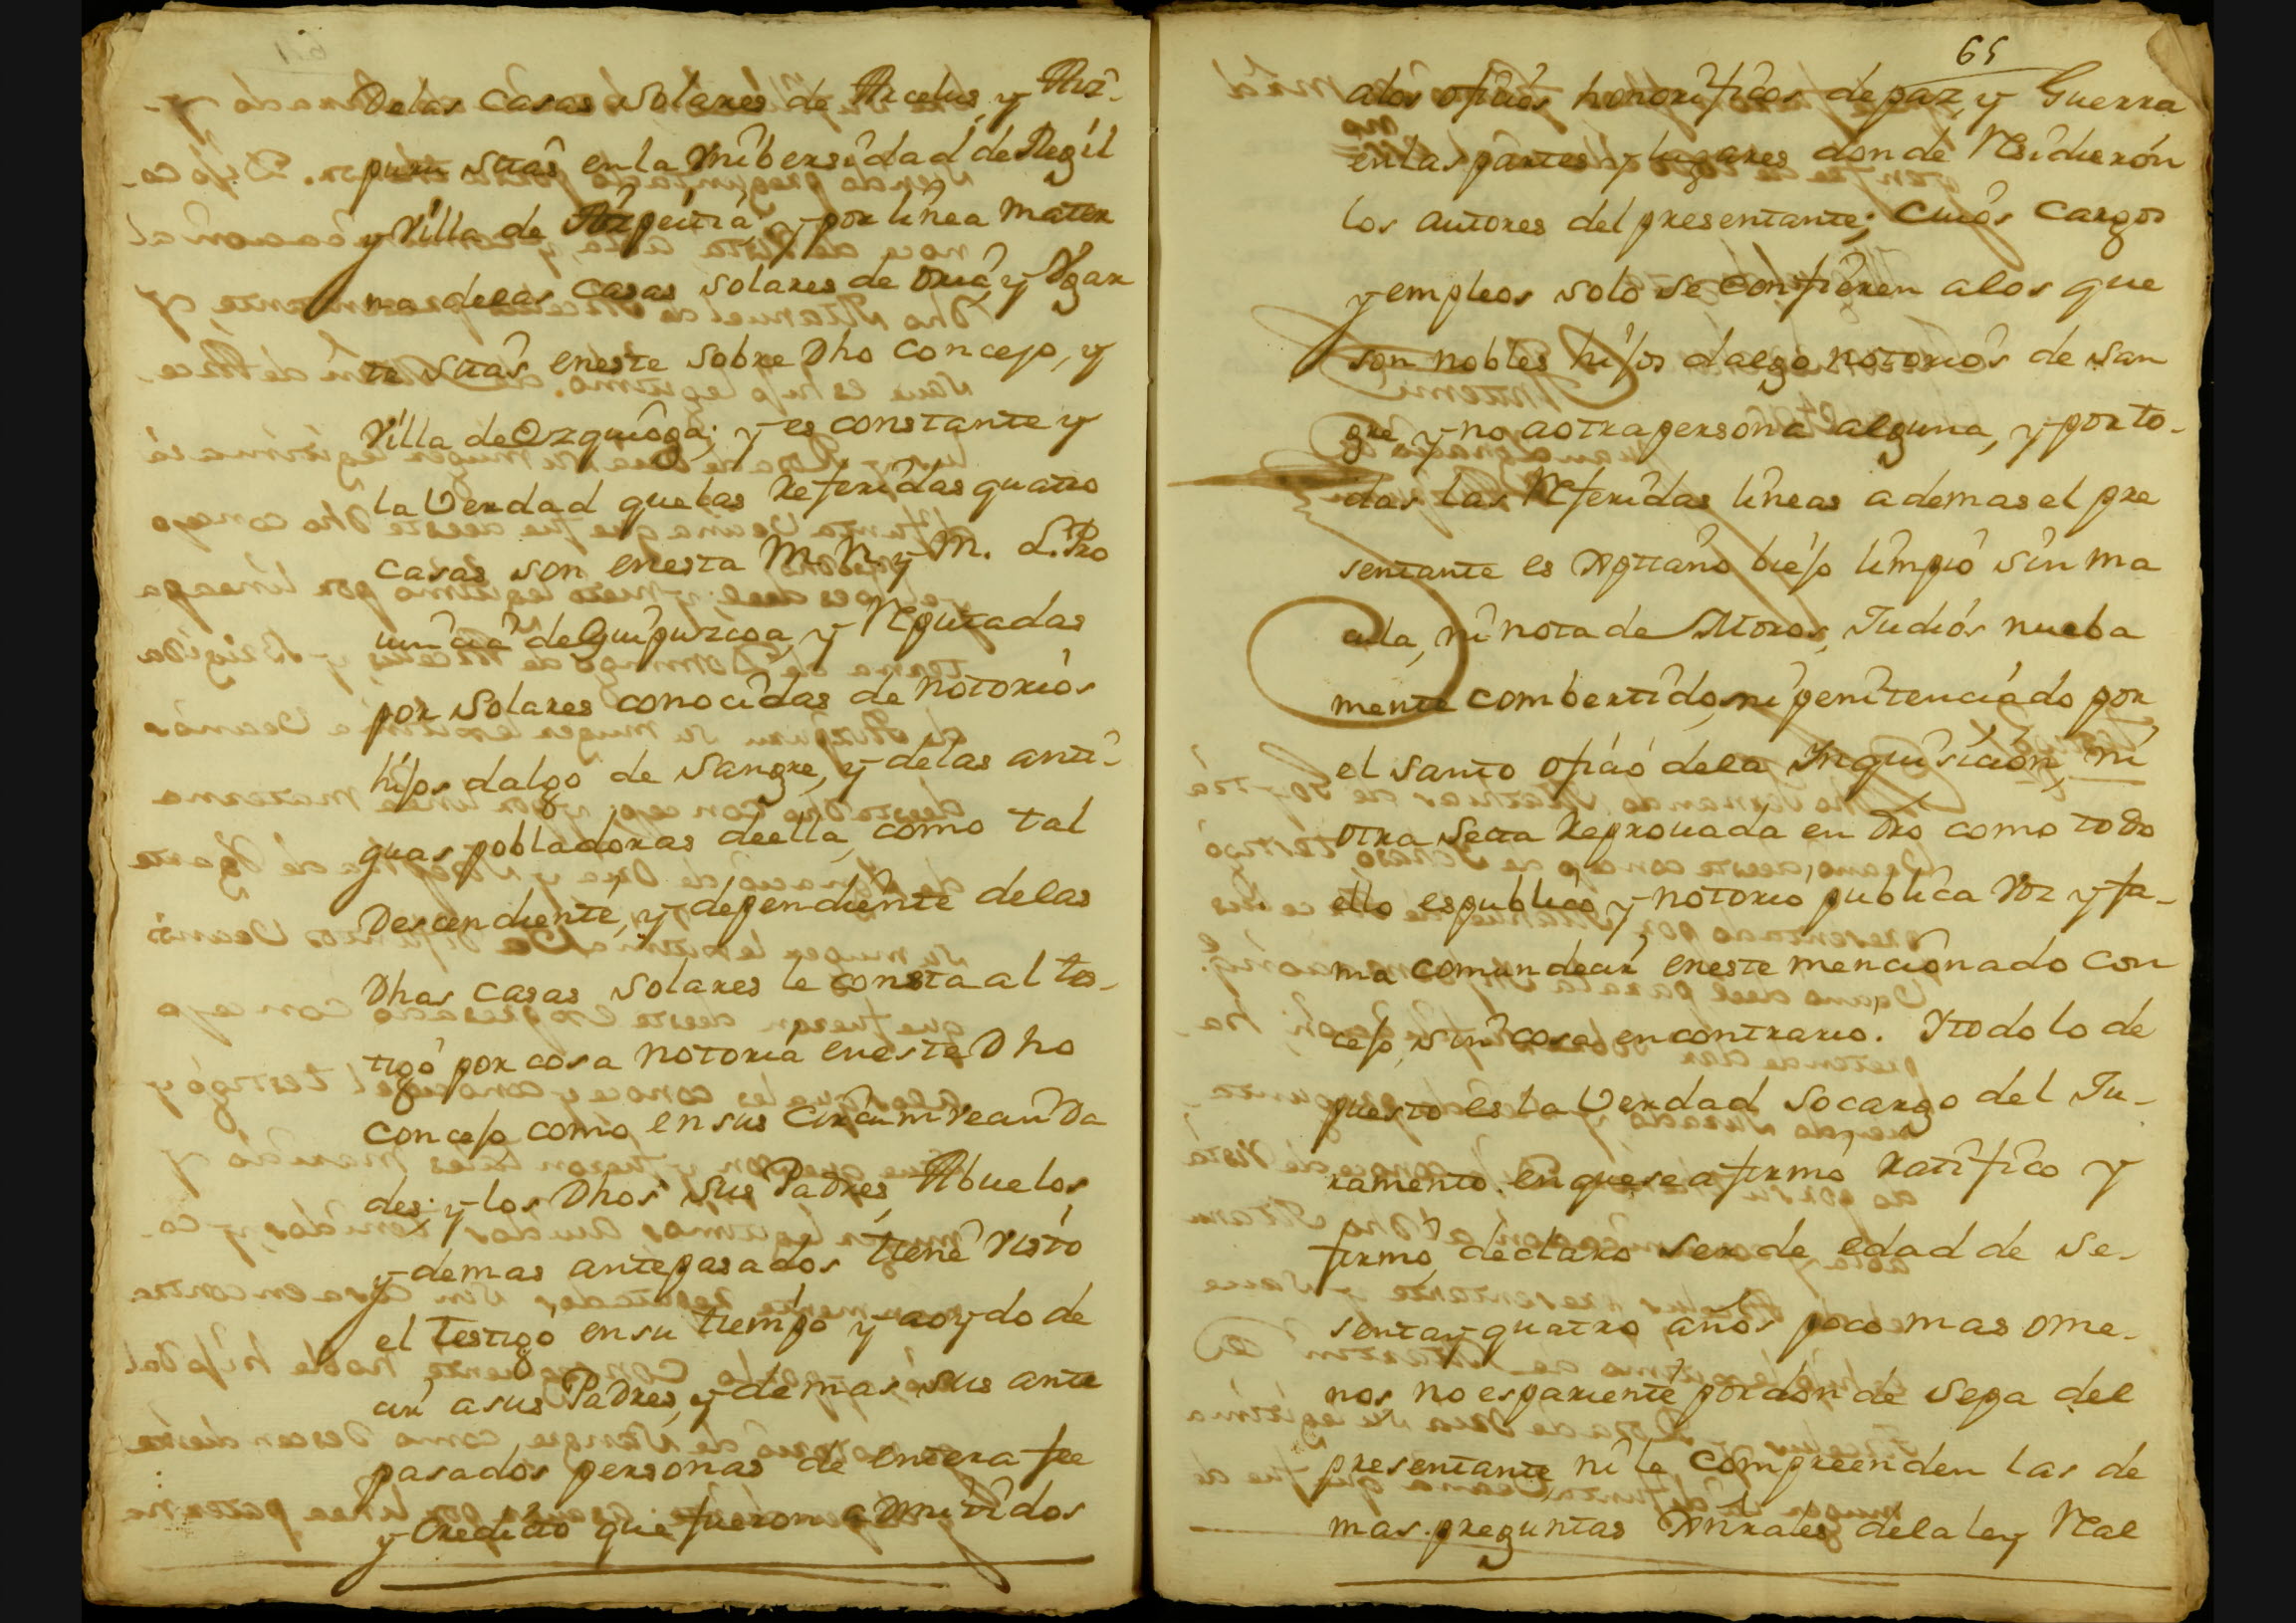 Delas Casas solares de Arcelus, y Aiz-
puru sitas en la Unibersidad de Regil
y Villa de Azpeitia, y por linea mater
na delas casas solares de Oria, y Ugar
te sitas eneste sobre Dho Concejo, y
Villa de Ezquioga; y es constante y
la Verdad que las Referidas quatro
casas son enesta M. N. y M. L. Pro
uincia de Guipuzcoa, y Reputadas
por Solares conocidas de notorios
hijos dalgo de Sangre, y delas anti-
guas pobladoras deella, como tal
Descendiente, y dependiente delas
Dhas casas Solares le consta al tes-
tigo por cosa notoria en este Dho
Concejo como en sus Circumvecinda
des; y los Dhos sus Padres, Abuelos,
y demas antepasados tiene visto
el Testigo en su tiempo y aoydo de
cir a sus Padres, y demas sus ante
pasados personas de entera fee
y Credicto que fueron admitidos
65
alos oficios honorificos de paz, y Guerra
en las partes y lugares donde Residieron
los autores del presentante; Cuios Cargos
y empleos solo se Confieren alos que
son nobles hijos dalgo notorios de san
gre, y no aotra persona alguna, y por to-
das las Referidas lineas ademas el pre
sentante es Xptiano biejo limpio sin ma
cula, ni nota de Moros, Judios nueba
mente combertido, ni penitenciado por
el santo oficio dela Inquisicion, ni
otra Secta Reprouada en Dro como todo
ello es publico y notorio publica Voz y fa-
ma comun decir en este mencionado Con
cejo, sin cosa en contrario. Y todo lo de
puesto es la Verdad socargo del Ju-
ramento en que se afirmó Ratifico y
firmó, declaro ser de edad de se-
senta y quatro años poco mas ome-
nos no es pariente por donde sepa del
presentante, ni le Compreenden las de
mas preguntas Xnrales de la ley Real